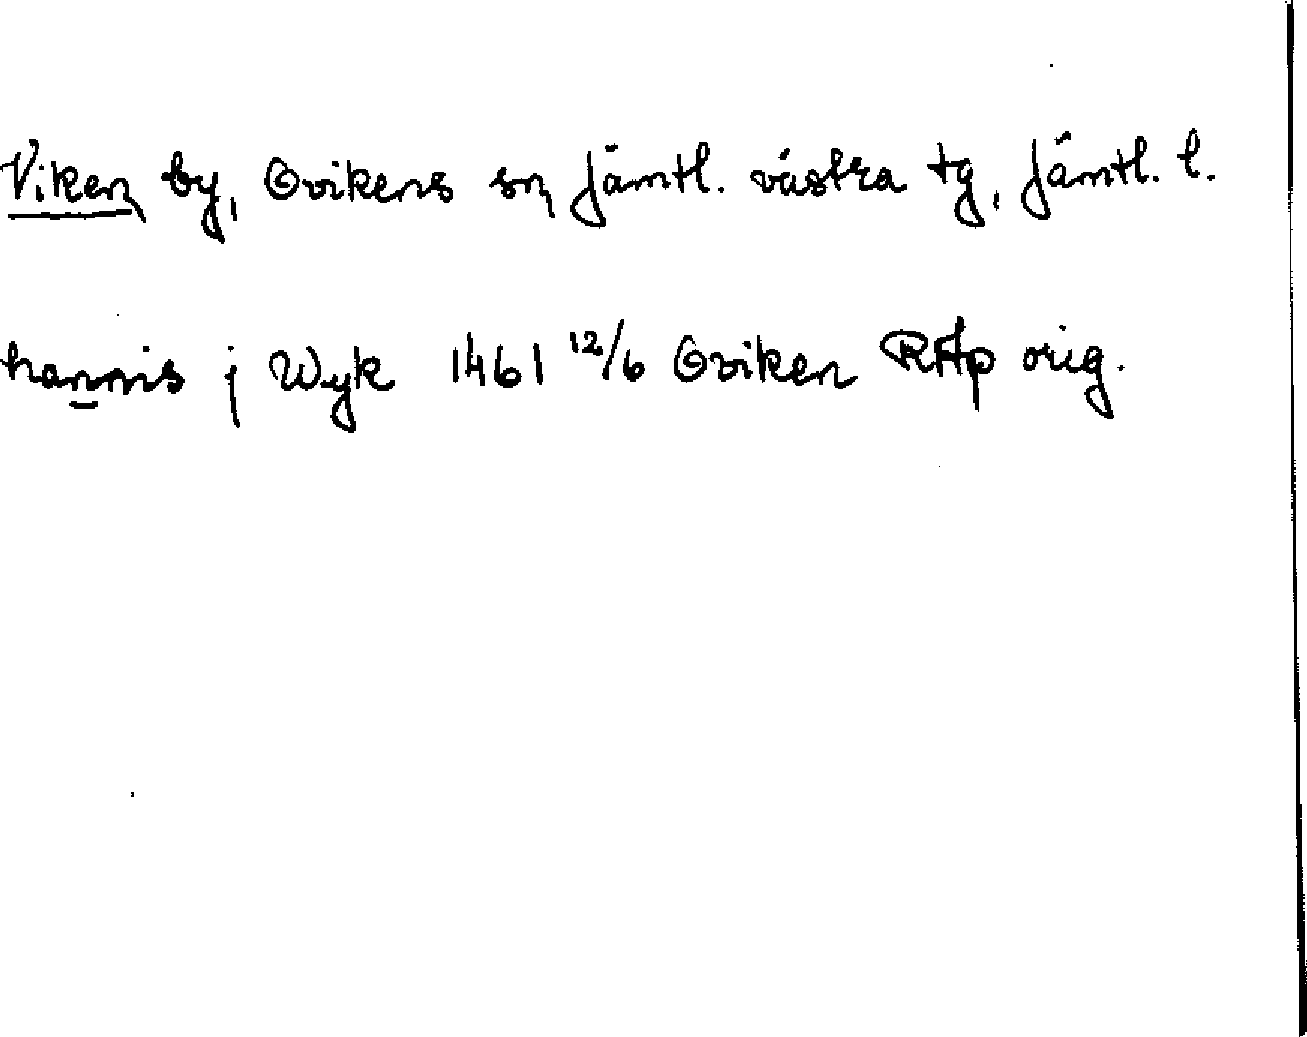 Viken by, Ovikens sn Jämtl. västra tg, Jämtl. l.
hannis j Wyk 1461 12/6 Oviken RAp orig.